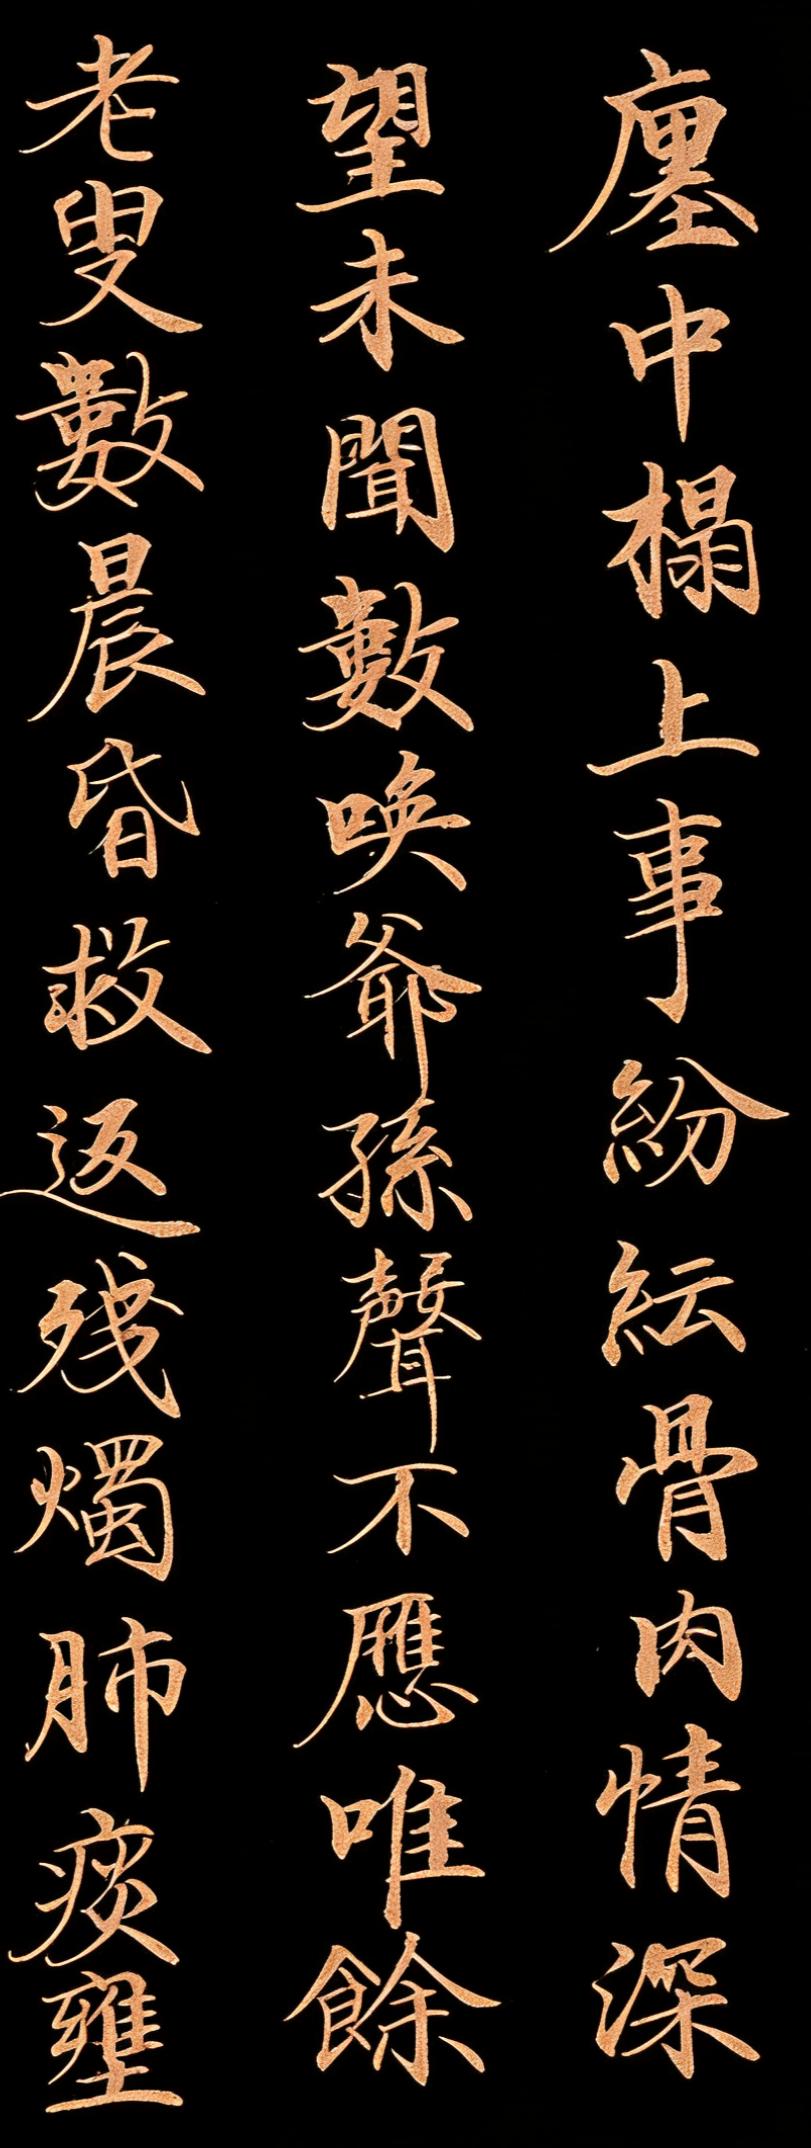 廛中榻上事紛紜骨肉情深
望未聞數喚爺孫聲不應唯餘
老叟數晨昏救返残燭肺痰壅